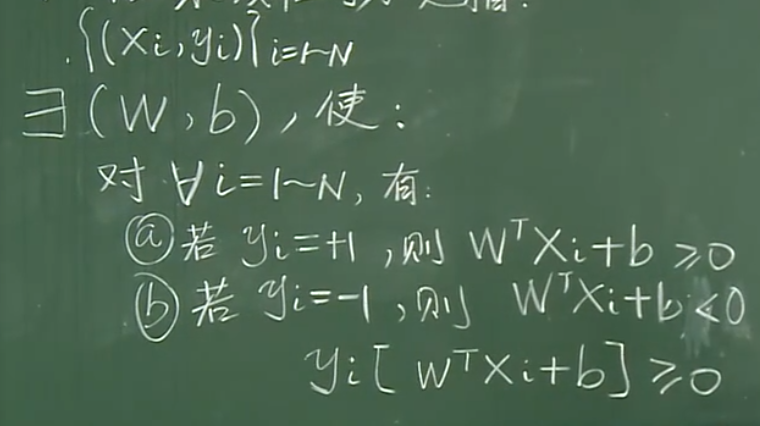 是指:
{(Xi,yi)}i=1~N
∃(W,b),使:
对∀i=1~N,有:
ⓐ若 yi=+1,则 WᵀXi+b≥0
ⓑ若 yi=-1,则 WᵀXi+b<0
yi[WᵀXi+b]≥0